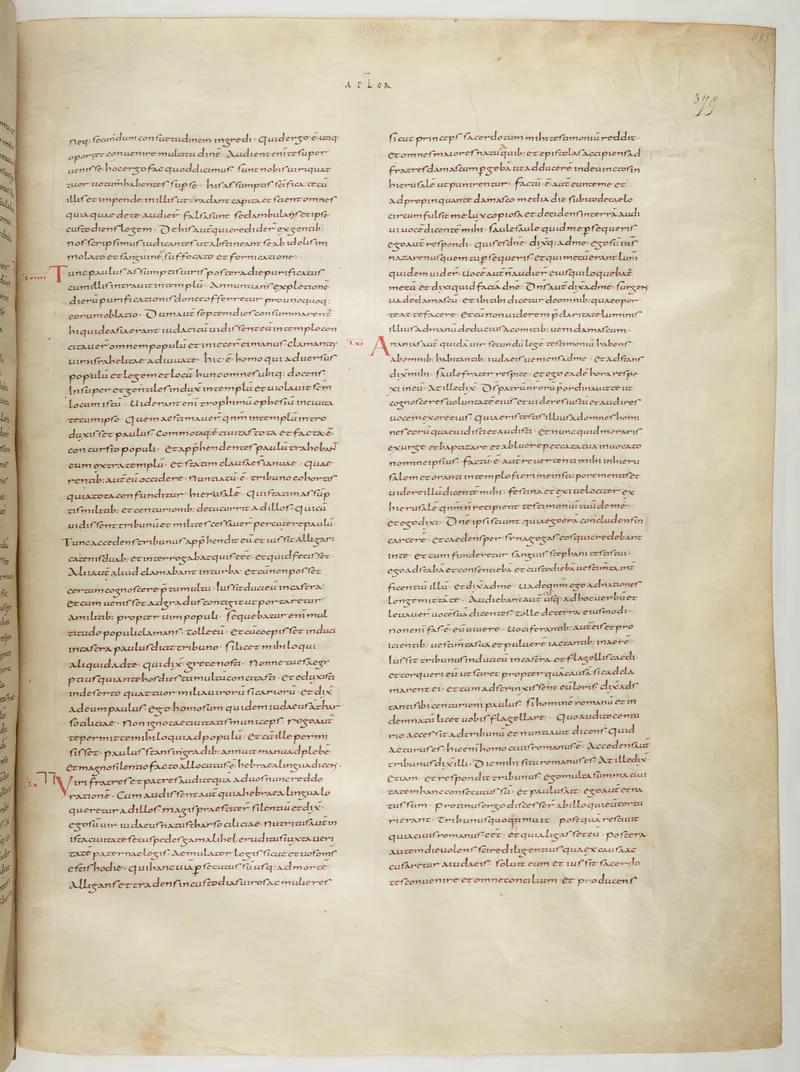 APLOR
385
379
neq; secundum consuetudinem ingredi · Quid ergo ē utiq:
oportet conuenire multitudinē · Audient enī te super
uenisse · hoc ergo fac quod dicimus · sunt nobis uiri quat
tuor uotum habentes sup se · his assumptis scīfica te cū
illis et impende in illis ut radant capita et scient omnes
quia quae de te audier̄ falsa sunt · sed ambulas et ipse
custodiens legem · De his aut qui credider̄ ex gentib:
nos scripsimus iudicantes ut abstineant se ab idolis im
molato et sanguine suffocato et fornicatione ·
Tunc paulus assumptis uiris postera die purificatus
cum illis intrauit in templū · Annuntians expletionē
dierū purificationis donec offerretur pro unoquoq:
eorum oblatio · Dum aut septem dies consummarentˉ
hi qui de asia erant iudaei cū uidissent eū in templo con
citauer̄ omnem populū et iniecer̄ ei manus clamantes
uiri israhelitae adiuuate · hic ē homo qui aduersus
populū et legem et locū hunc omnes ubiq: docens ·
Insuper et gentiles induxˉ in templū et uiolauit scm̄
locum istū · Uiderant enī trophimū ephesiū in ciuita
te cum ipso · Quem aestimauer̄ qnm̄ in templū intro
duxisset paulus · Commotaq: ē ciuitas tota et facta ē
concursio populi · Et app̄hendentes paulū trahebant
eum extra templū · Et statim clausae s̄ ianuae · Quae
rentib: aut eū occidere · Nuntiatū ē tribuno cohortis
quia tota confunditur hierusalē · Qui statim assūp
tis militib: et centurionib: decucurrit ad illos · qui cū
uidissent tribunū et milites cessauer̄ percutere paulū
Tunc accedens tribunus app̄hendit eū et iussit alligari
catenis duab: et interrogabat quis eēt · et quid fecisset ·
Alii aut aliud clamabant in turba · Et cū non posset
certum cognoscere p̄ tumultu · Iussit duci eū in castra ·
Et cum uenisset ad gradus contigit ut portaretur
a militib: propter uim populi · Sequebatur enī mul
titudo populi clamans · tolle eū · Et cū coepisset induci
in castra paulus dicit tribuno · Si licet mihi loqui
aliquid ad te · qui dixˉ grece nosti · Nonne tu es aegȳ
ptius qui ante hos dies tumultū concitasti · Et eduxisti
in deserto quattuor milia uirorū sicariorū · Et dixˉ
ad eum paulus · Ego homo sum quidem iudaeus a thar
so ciliciae · Non ignotae ciuitatis municeps · rogo aut
te permitte mihi loqui ad populū · Et cū ille permi
sisset · paulus stans in gradib: annuit manu ad plebē ·
et magno silentio facto allocutus ē hebraea lingua dicens ·
Uiri fratres et patres audite qua aduos nunc reddo
rationē · Cum audissent aut quia hebraea lingua lo
queretur ad illos magis praestiter̄ silentiū et dixˉ ·
ego sū uir iudaeus natus tharso ciliciae · Nutritus aut in
ista ciuitate secus pedes gamalihel eruditus iuxta ueri
tatē paternae legis · Aemulator legis sicut et uos oms̄
estis hodie · qui hanc uia psecutus sū usq: ad mortē ·
Alligans et tradens in custodias uiros ac mulieres
sicut princeps sacerdotum mihi testimoniū reddit ·
et omnes maiores natu a quib: et epistolas accipiens ad
fratres damascum pgebā ut adducerē inde uinctos in
hierusalē ut punirentur · Factū ē aut eunte me et
adpropinquante damasco media die subito de caelo
circumfulsit me lux copiosa et decidens in terrā audi
ui uocē dicentē mihi · saule saule quid me psequeris
ego aut respondi · quis es dn̄e · dixitq: ad me · ego sū ih̄s
nazarenus quem tu psequeris et qui mecū erant lum̄
quidem uider̄ · Uocē aut n̄ audier̄ eius qui loquebatˉ
mecū et dixi quid faciā dn̄e · Dn̄s aut dixˉ ad me · surgens
uade damascū · et ibi tibi dicetur de omnib: quae opor
teat te facere · et cū non uiderem p̄ claritate luminis
illius ad manū deductus a comitib: ueni damascum ·
Ananias aut quidā uir secundū legē testimoniū habens
ab omnib: habitantib: iudaeis ueniens ad me · Et adstans
dixˉ mihi · Saule frater respice · et ego eadē hora respe
xi in eū · At ille dixˉ · Ds̄ patrū nrorū p̄ordinauit te ut
cognosceres uoluntatē eius et uideres iustū et audires
uocem ex ore eius · quia eris testis illius ad omnes homi
nes eorū quae uidisti et audisti · Et nunc quid moraris
exurge et baptizare et ablue peccata tua inuocato
nomine ipsius · factū ē aut reuertenti mihi in hieru
salem et oranti in templo fieri me in stupore mentis et
uidere illū dicentē mihi · festina et exi uelociter ex
hierusalē qnm̄ n̄ recipient testimoniū tuū de me ·
et ego dixi · Dn̄e ipsi sciunt quia ego erā concludens in
carcerē · et caedens per synagogas eos qui credebant
in te · et cum funderetur sanguis stephani testis tui ·
ego adstabā et consentiebā et custodiebā uestimta int̄
ficientiū illū · et dixˉ ad me · uade qnm̄ ego ad nationes
longe mittā te · Audiebant aut usq: ad hoc uerbū et
leuauer̄ uocē suā dicentes · tolle de terra eius modi ·
non enī fas ē eū uiuere · Uociferantib: aut eis et pro
icientib: uestimta sua et puluerē iactantib: in aerē ·
Iussit tribunus induci eū in castra et flagellis caedi ·
et torqueri eū ut sciret propter quā causā sic ei adcla
marent · et cum adstrinxissent eū loris dixˉ ad s
tanti sibi centurioni paulus · si hominē romanū et in
demnatū licet uobis flagellare · Quo audito centu
rio accessit ad tribunū et nuntiauit dicens quid
acturus es hic enī homo ciuis romanus ē · Accedens aut
tribunus dixˉ illi · Dic mihi si tu romanus es · At ille dixˉ
etiam · et respondit tribunus · ego multa summa ciui
tatem hanc consecutus sū · et paulus ait · ego aut et na
tus sum · protinus ergo discesser̄ ab illo qui eū tortu
ri erant · Tribunus quoq: timuit · postquā resciuit
quia ciuis romanus eēt · et quia alligasset eū · postera
aut em die uolens scire diligentius qua ex causa ac
cusaretur a iudaeis · soluit eum et iussit sacerdo
tes conuenire et omne concilium · et producens